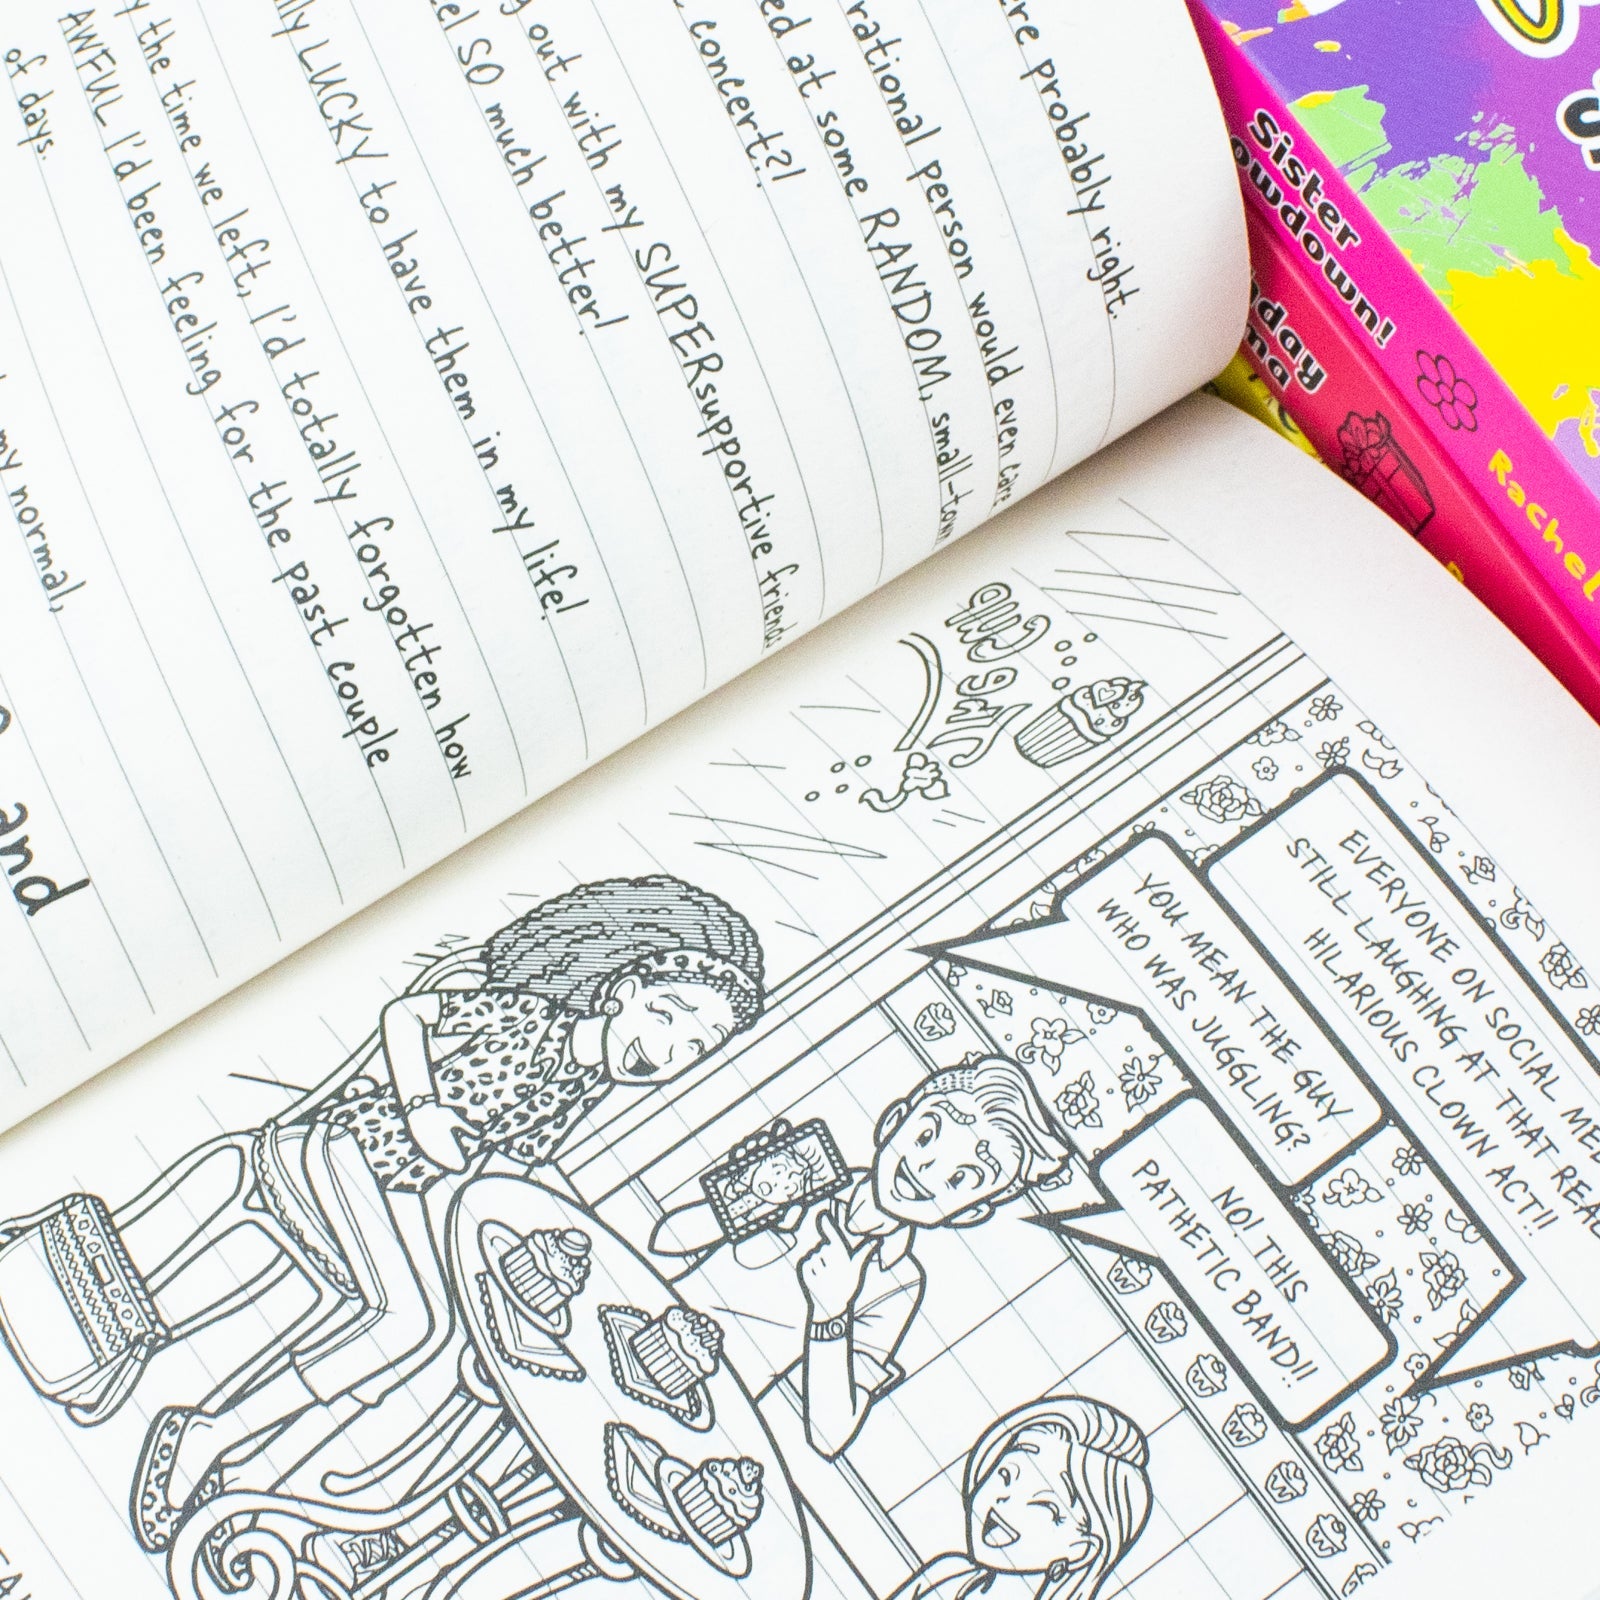 ere probably right.
rational person would even care
ed at some RANDOM, small-town
concert?!
g out with my SUPERsupportive friends
el SO much better!
lly LUCKY to have them in my life!
y the time we left, I'd totally forgotten how
AWFUL I'd been feeling for the past couple
of days.
my normal,
and
EVERYONE ON SOCIAL MED
STILL LAUGHING AT THAT REAL
HILARIOUS CLOWN ACT!!
YOU MEAN THE GUY
WHO WAS JUGGLING?
NO! THIS
PATHETIC BAND!!
Sister
owdown!
Rachel
day